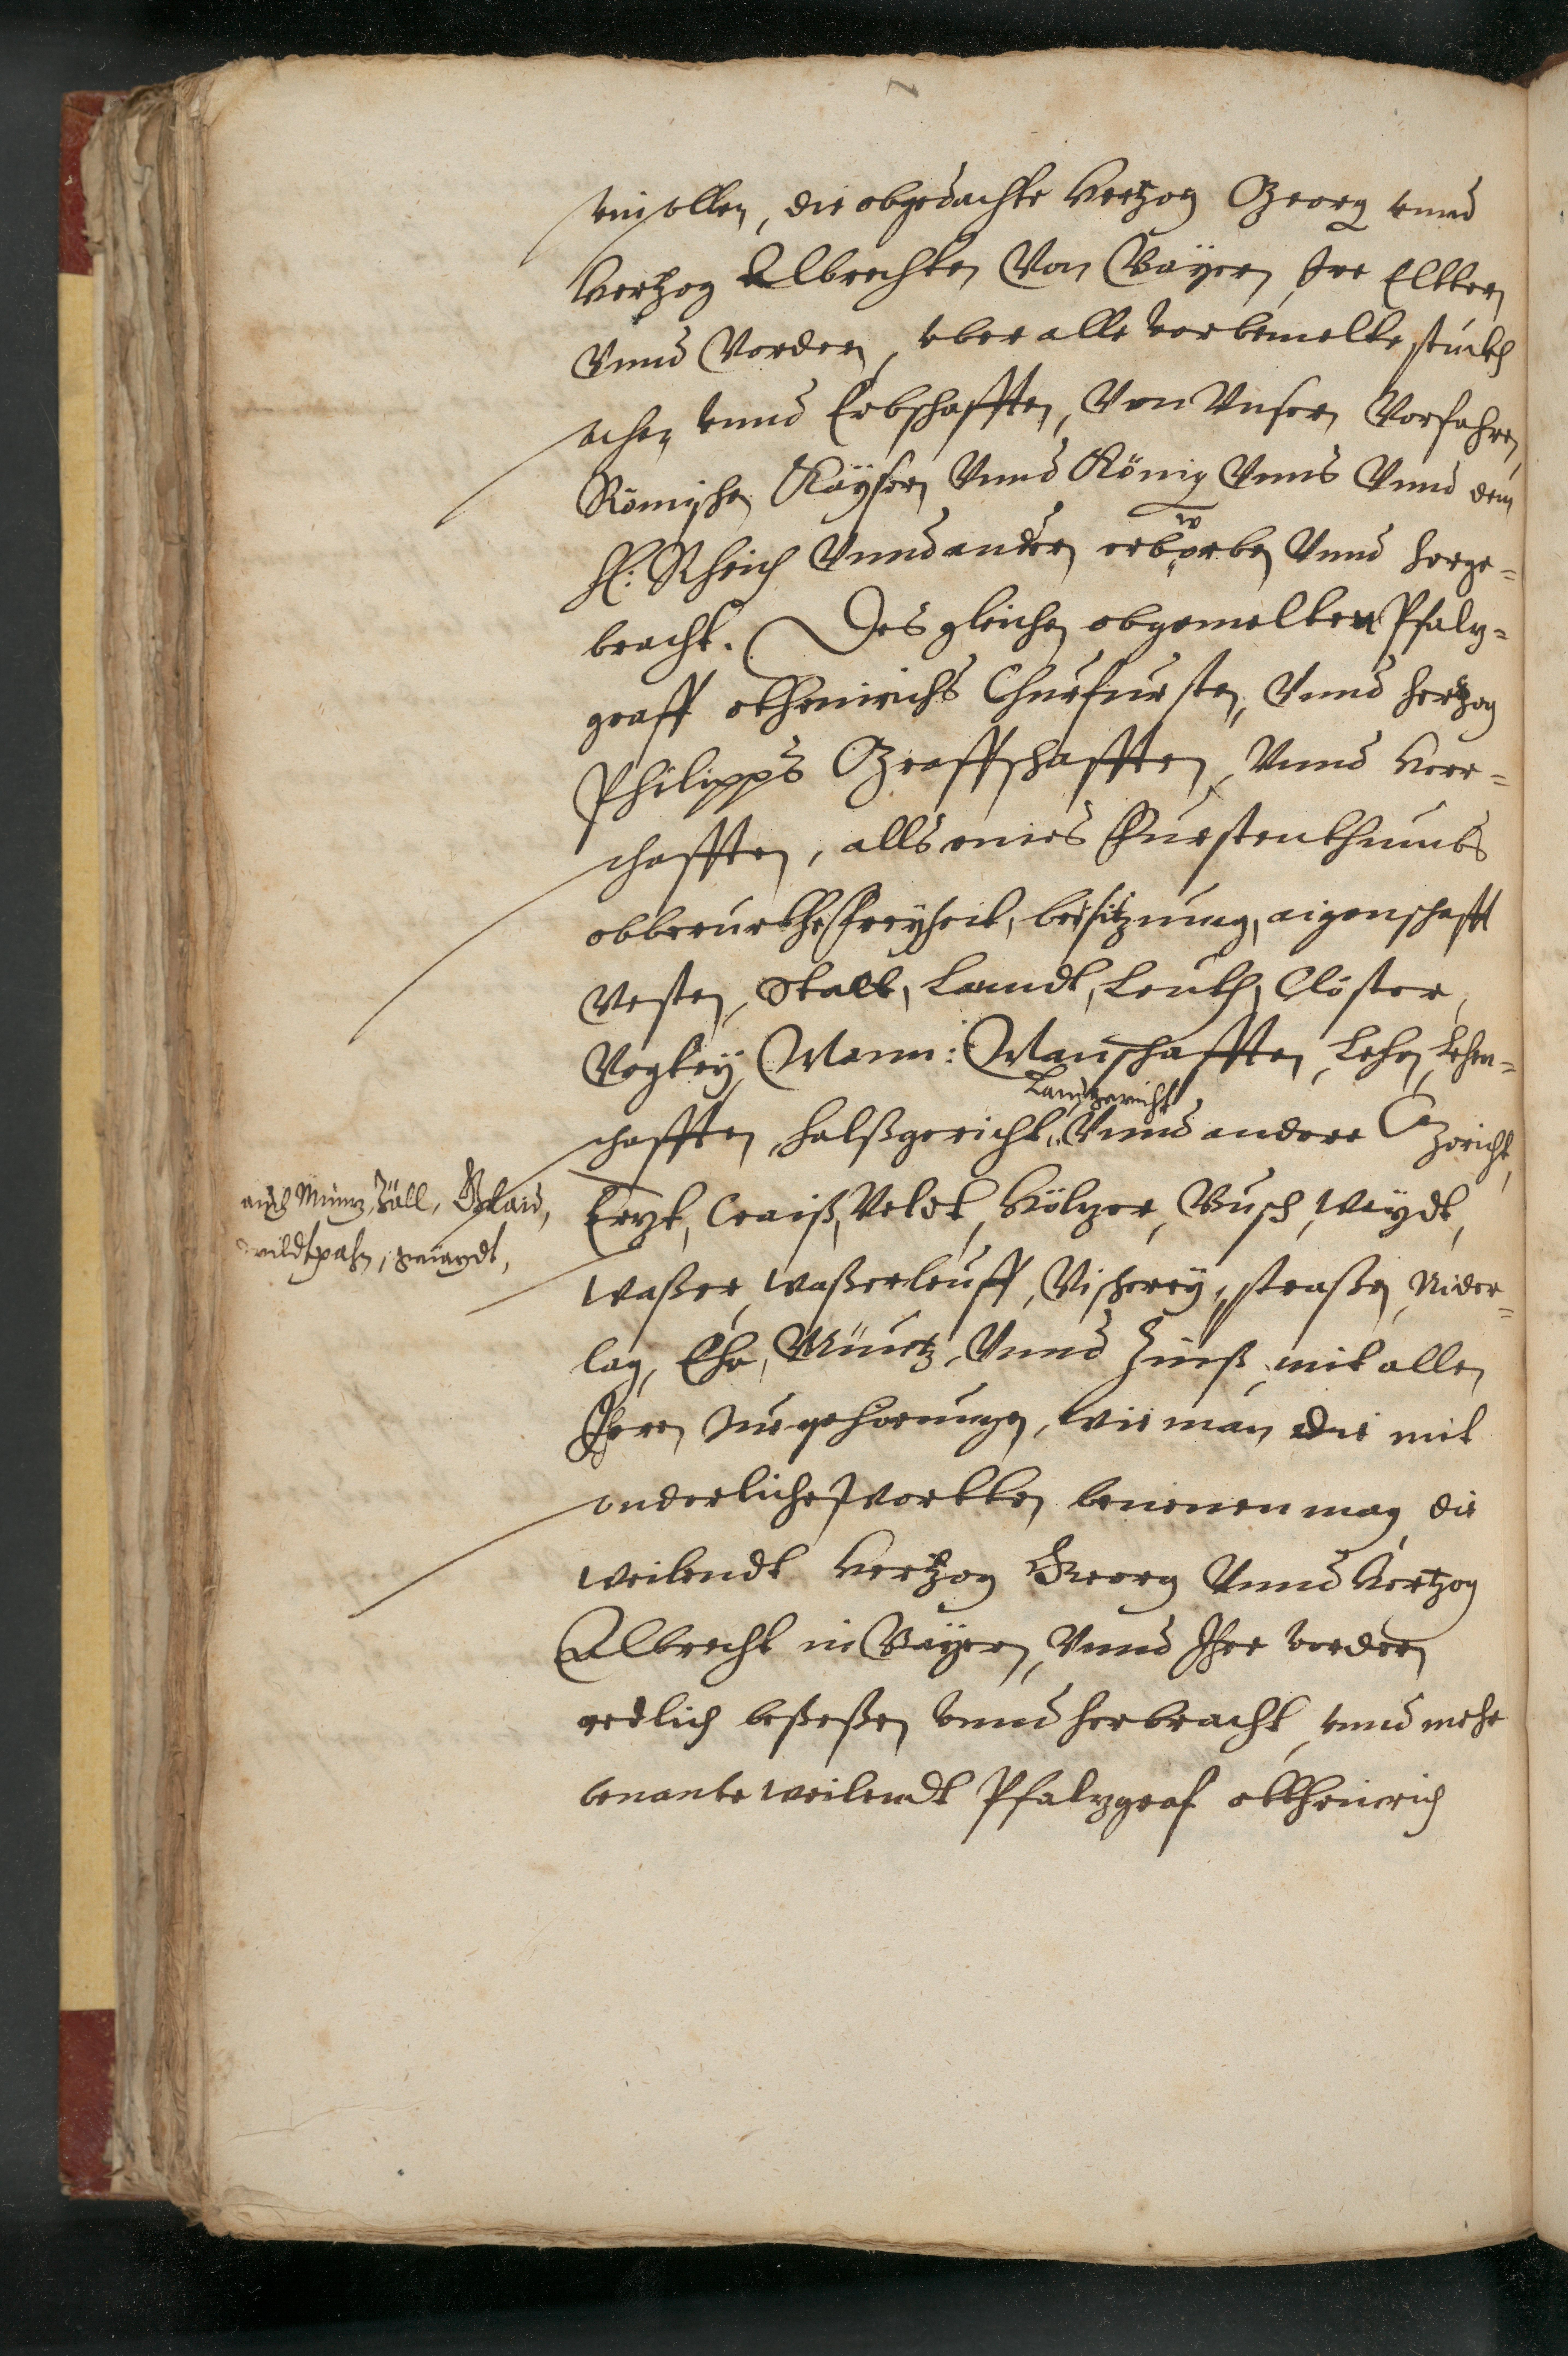 sein sollen, die obgedachte Hertzog Georg vnnd
Hertzog Albrechten Von Bayern, Ire Eltern
Vnnd Vordern, vber alle vorbemelte stuckh
sachen vnnd Erbschafften, Von Vnsern Vorfahren,
Römischen Kaysern Vnnd König Vnns Vnnd dem
H: Rheich Vnnd andern erworben Vnnd herge-
bracht. Desgleichen obgemelten Pfalz-
graff otheinrichs Churfursten, Vnnd hertzog
Philipps Graffschafften, Vnnd Herr-
schafften, alls eines Furstenthumbs
obberurthe Freyheit, besitzung, aigenschafft
Vesten, Statt, Landt, Leuth, Clöster,
Vogtey, Mann: Manschafften, Lehen, Lehen-
schafften, halßgericht, Landtgericht Vnnd andere Gericht,
auch Müntz, Zöll, Glaid,
wildtpahn,
Ertzt, Craiß, Veldt, Höltzer, Busch, Waydt,
Waßer, Waßerleuff, Vischerey, straßen, Nider-
lag, Ehr, Müntz, Vnnd Zinß, mit allen
Ihren Zuegehorungen, wie man die mit
sonderlichen Wortten benenen mag, die
weilendt Hertzog Georg Vnnd Hertzog
Albrecht in Bayern, Vnnd Ihre vordern
redlich beßeßen vnnd herbracht, vnnd mehr
benante weilendt Pfalzgraf ottheinrich